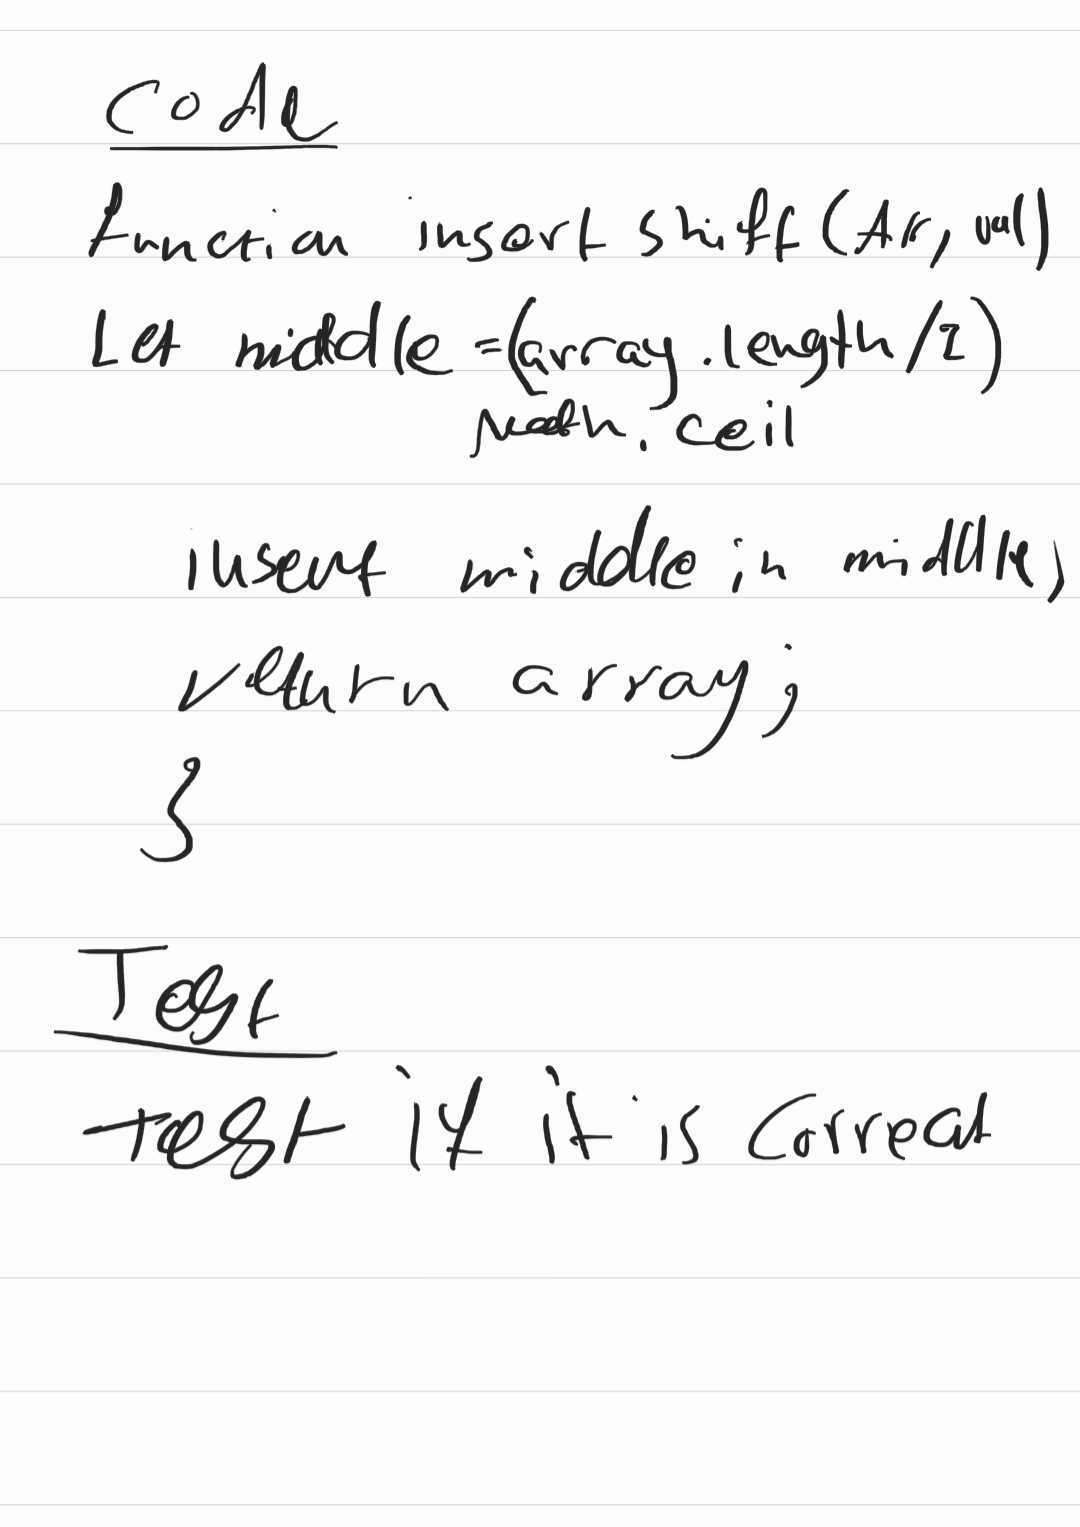 Code
function insert shift (Ar, val)
Let middle = (array.length/2)
Math.ceil
insert middle in middle,
return array;
}
Test
test if it is correct